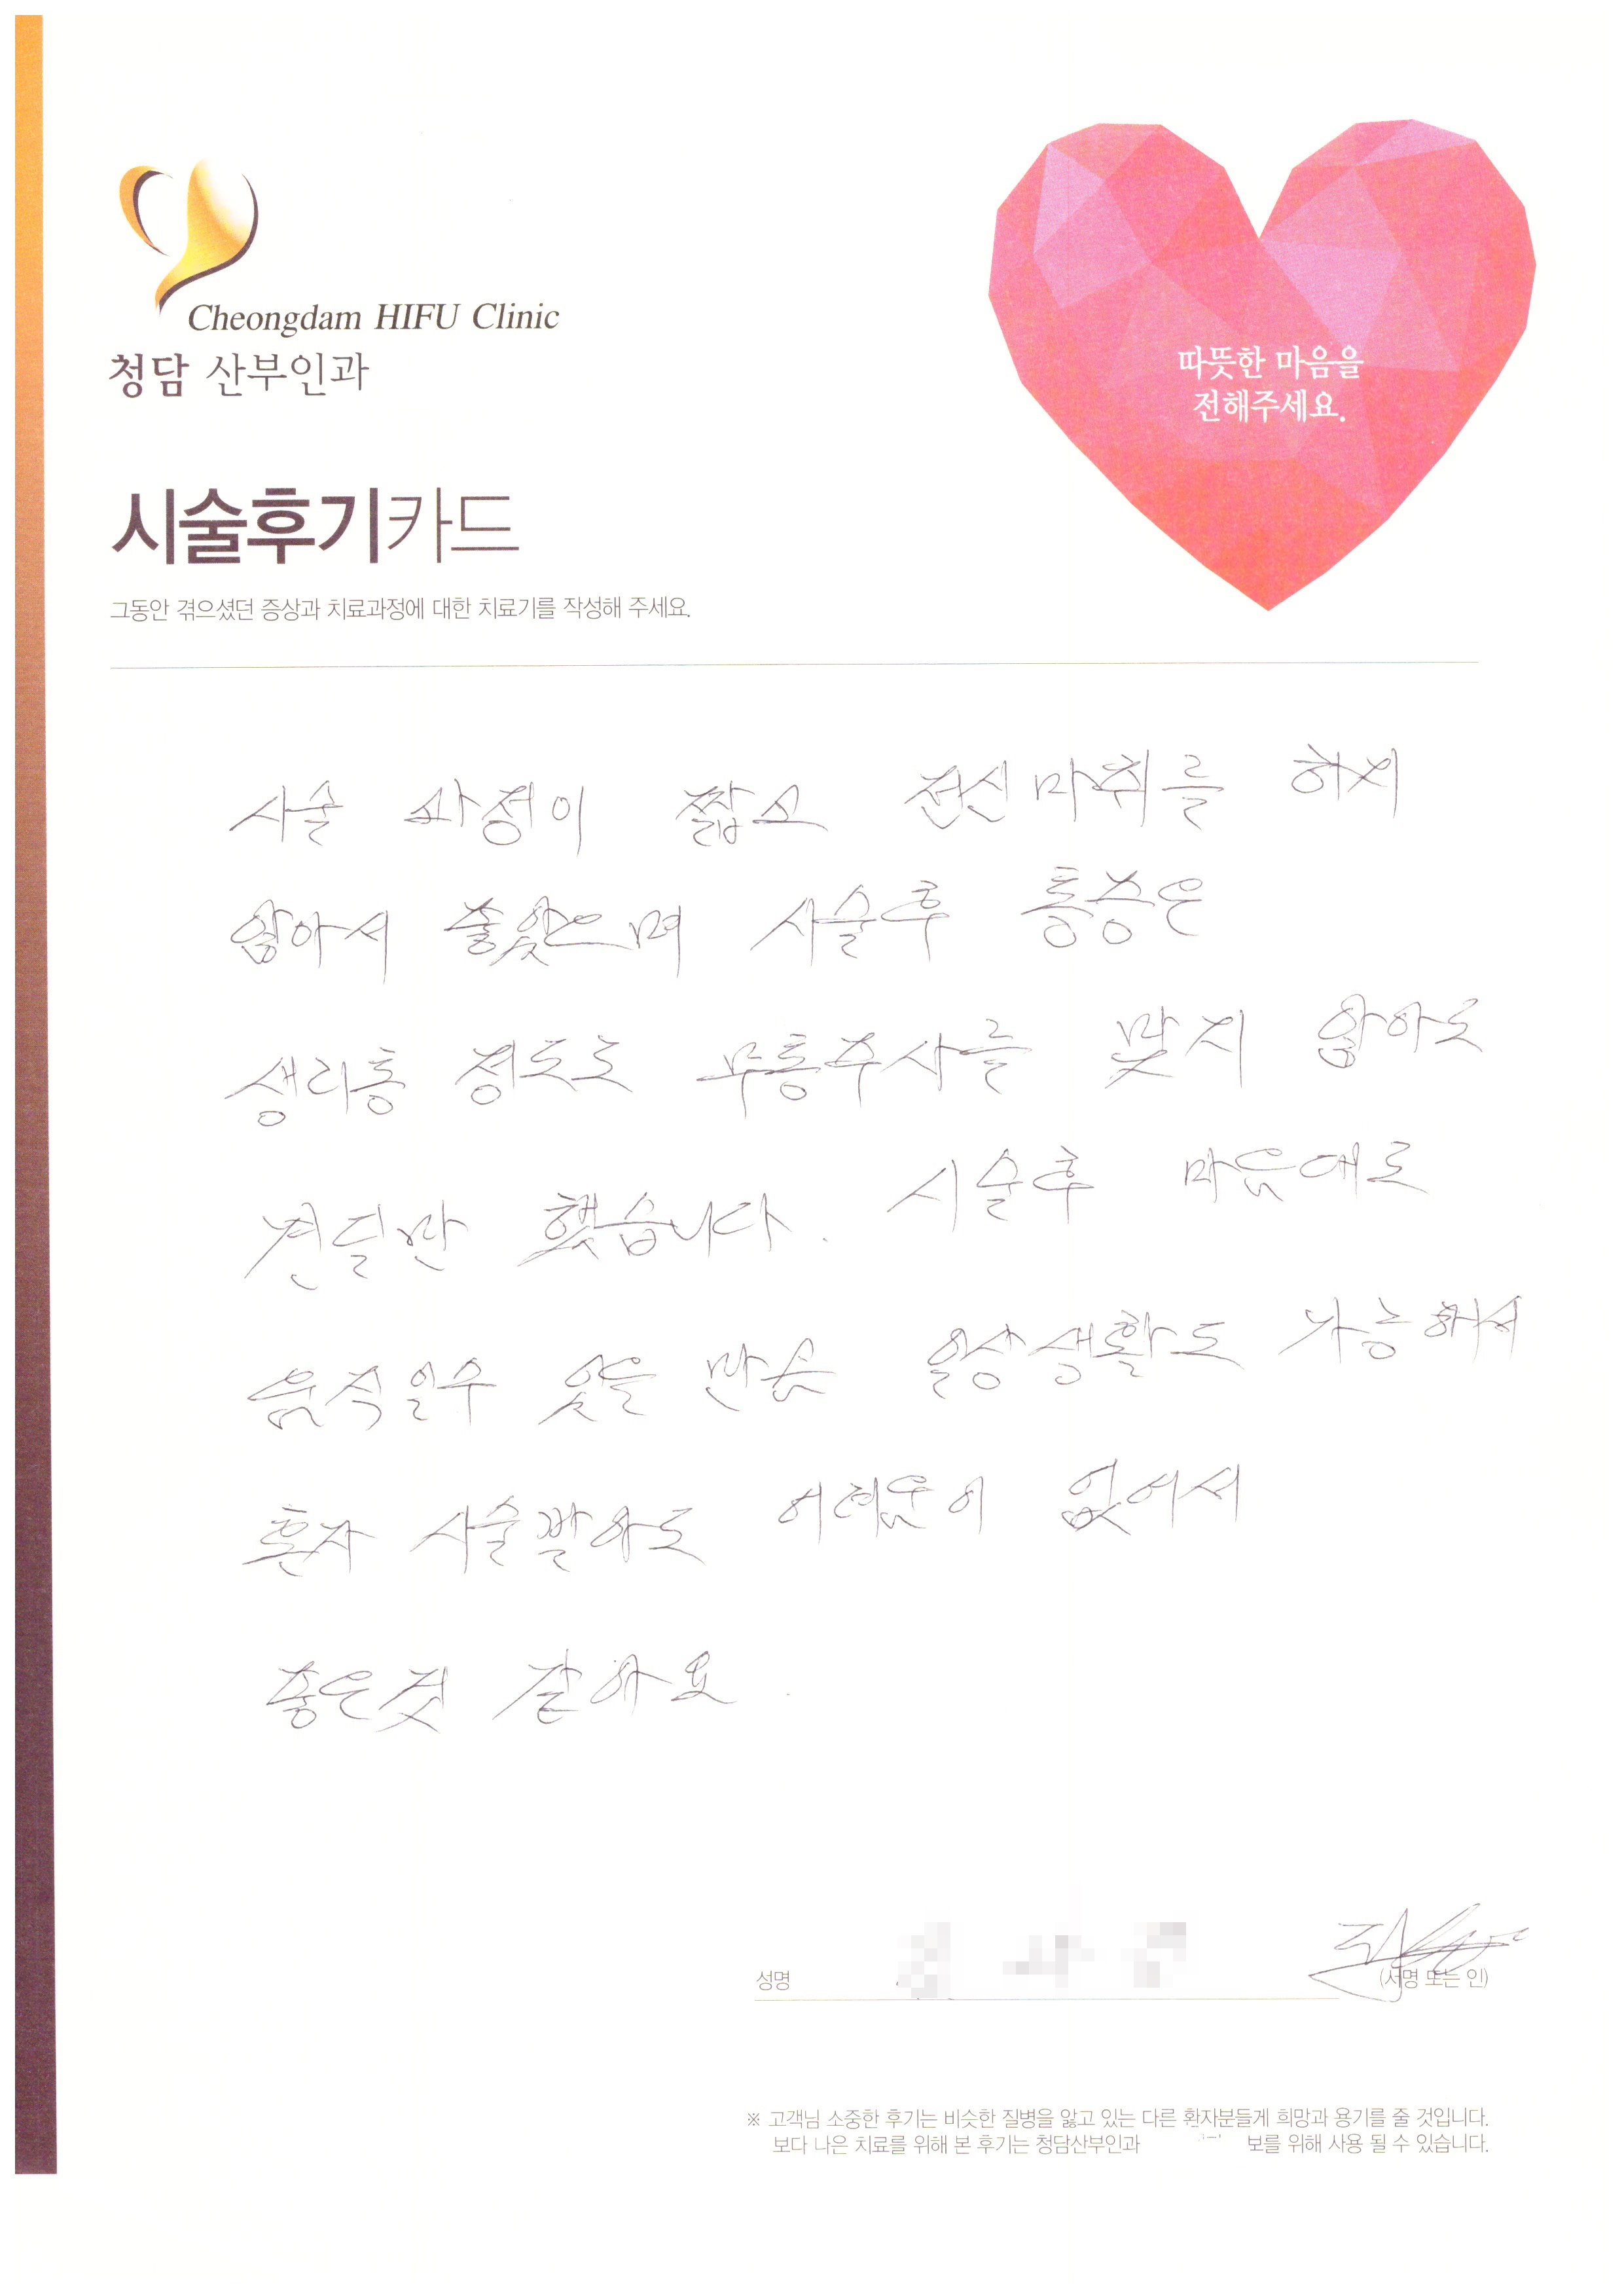 Cheongdam HIFU Clinic
청담 산부인과
따뜻한 마음을
전해주세요.
시술후기카드
그동안 겪으셨던 증상과 치료과정에 대한 치료기를 작성해 주세요.
시술 과정이 짧고 전신마취를 하지
않아서 좋았으며 시술후 통증은
생리통 정도로 무통주사를 맞지 않아도
견딜만 했습니다. 시술후 마음대로
움직일수 있을 만큼 일상생활도 가능해서
혼자 시술받아도 어려움이 없어서
좋은것 같아요.
성명
(서명 또는 인)
※ 고객님 소중한 후기는 비슷한 질병을 앓고 있는 다른 환자분들게 희망과 용기를 줄 것입니다.
보다 나은 치료를 위해 본 후기는 청담산부인과 보를 위해 사용 될 수 있습니다.